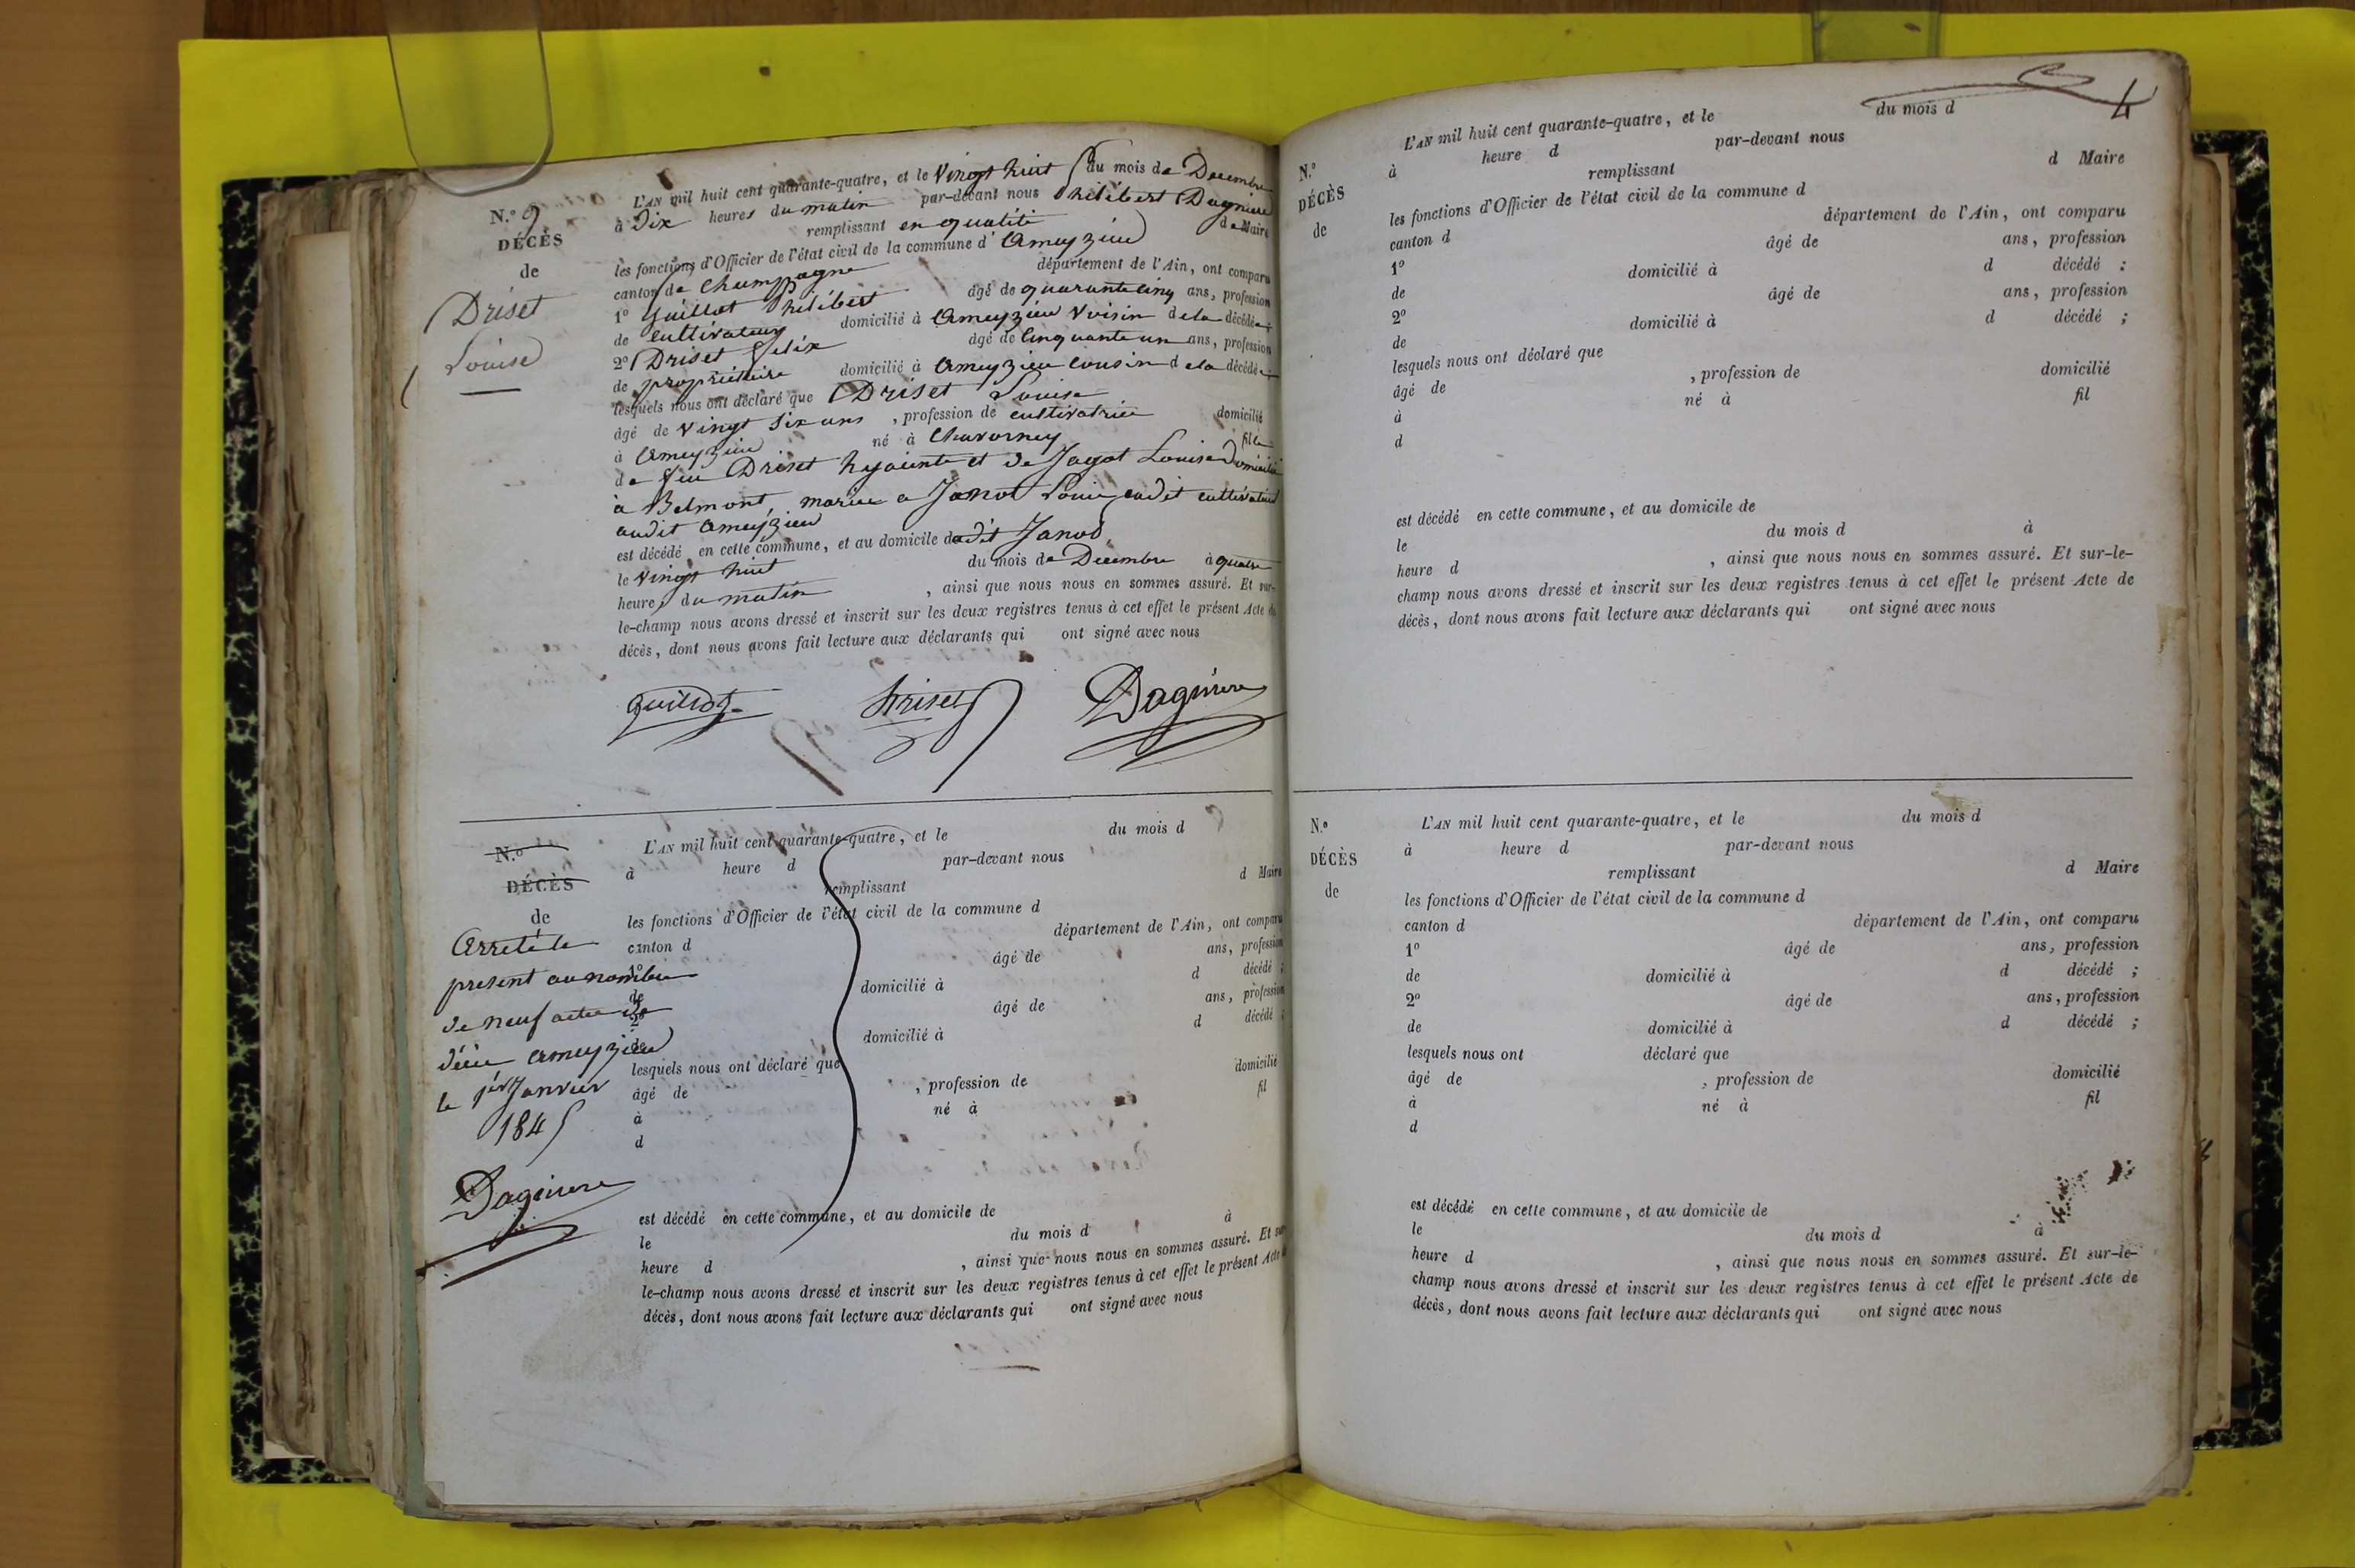 N.º 9
DÉCÈS
de
Driset
Louise
L'AN mil huit cent quarante-quatre, et le vingt huit du mois de Decembre
à Dix heures du matin par-devant nous Philibert Dagniere
remplissant en qualité de Maire
les fonctions d'Officier de l'état civil de la commune d'Ameyzieu
canton de Champagne département de l'Ain, ont comparu
1º Guillot Philibert âgé de quarante cinq ans, profession
de cultivateur domicilié à Ameyzieu voisin de la décédée ;
2º Driset Felix âgé de Cinquante un ans, profession
de propriétaire domicilié à Ameyzieu Cousin de la décédée ;
lesquels nous ont déclaré que Driset Louise
âgé de vingt six ans , profession de cultivatrice domicilié
à Ameyzieu né à Chavorney fille
de feu Driset hyacinte et de Jagot Louise Domiciliée
à Belmont, mariée a Janod Louis, cultivateur
audit Ameyzieu
est décédé en cette commune, et au domicile dudit Janod
le vingt huit du mois de Decembre à quatre
heures du matin , ainsi que nous nous en sommes assuré. Et sur-
le-champ nous avons dressé et inscrit sur les deux registres tenus à cet effet le présent Acte de
décès, dont nous avons fait lecture aux déclarants qui ont signé avec nous
Guillot Driset Dagniere
N.º
DÉCÈS
de
Arreté le
present au nombre
de neuf actes de
décès Ameyzieu
le 1er Janvier
1845
Dagniere
L'AN mil huit cent quarante-quatre, et le du mois d
à heure d par-devant nous
remplissant d Maire
les fonctions d'Officier de l'état civil de la commune d
canton d département de l'Ain, ont comparu
1º âgé de ans, profession
de domicilié à d décédé ;
2º âgé de ans, profession
de domicilié à d décédé ;
lesquels nous ont déclaré que
âgé de , profession de domicilié
à né à fil
d
est décédé en cette commune, et au domicile de
le du mois d à
heure d , ainsi que nous nous en sommes assuré. Et sur-
le-champ nous avons dressé et inscrit sur les deux registres tenus à cet effet le présent Acte de
décès, dont nous avons fait lecture aux déclarants qui ont signé avec nous
4
N.º
DÉCÈS
de
L'AN mil huit cent quarante-quatre, et le du mois d
à heure d par-devant nous
remplissant d Maire
les fonctions d'Officier de l'état civil de la commune d
canton d département de l'Ain, ont comparu
1º âgé de ans, profession
de domicilié à d décédé :
2º âgé de ans, profession
de domicilié à d décédé ;
lesquels nous ont déclaré que
âgé de , profession de domicilié
à né à fil
d
est décédé en cette commune, et au domicile de
le du mois d à
heure d , ainsi que nous nous en sommes assuré. Et sur-le-
champ nous avons dressé et inscrit sur les deux registres tenus à cet effet le présent Acte de
décès, dont nous avons fait lecture aux déclarants qui ont signé avec nous
N.º
DÉCÈS
de
L'AN mil huit cent quarante-quatre, et le du mois d
à heure d par-devant nous
remplissant d Maire
les fonctions d'Officier de l'état civil de la commune d
canton d département de l'Ain, ont comparu
1º âgé de ans, profession
de domicilié à d décédé ;
2º âgé de ans, profession
de domicilié à d décédé ;
lesquels nous ont déclaré que
âgé de , profession de domicilié
à né à fil
d
est décédé en cette commune, et au domicile de
le du mois d à
heure d , ainsi que nous nous en sommes assuré. Et sur-le-
champ nous avons dressé et inscrit sur les deux registres tenus à cet effet le présent Acte de
décès, dont nous avons fait lecture aux déclarants qui ont signé avec nous